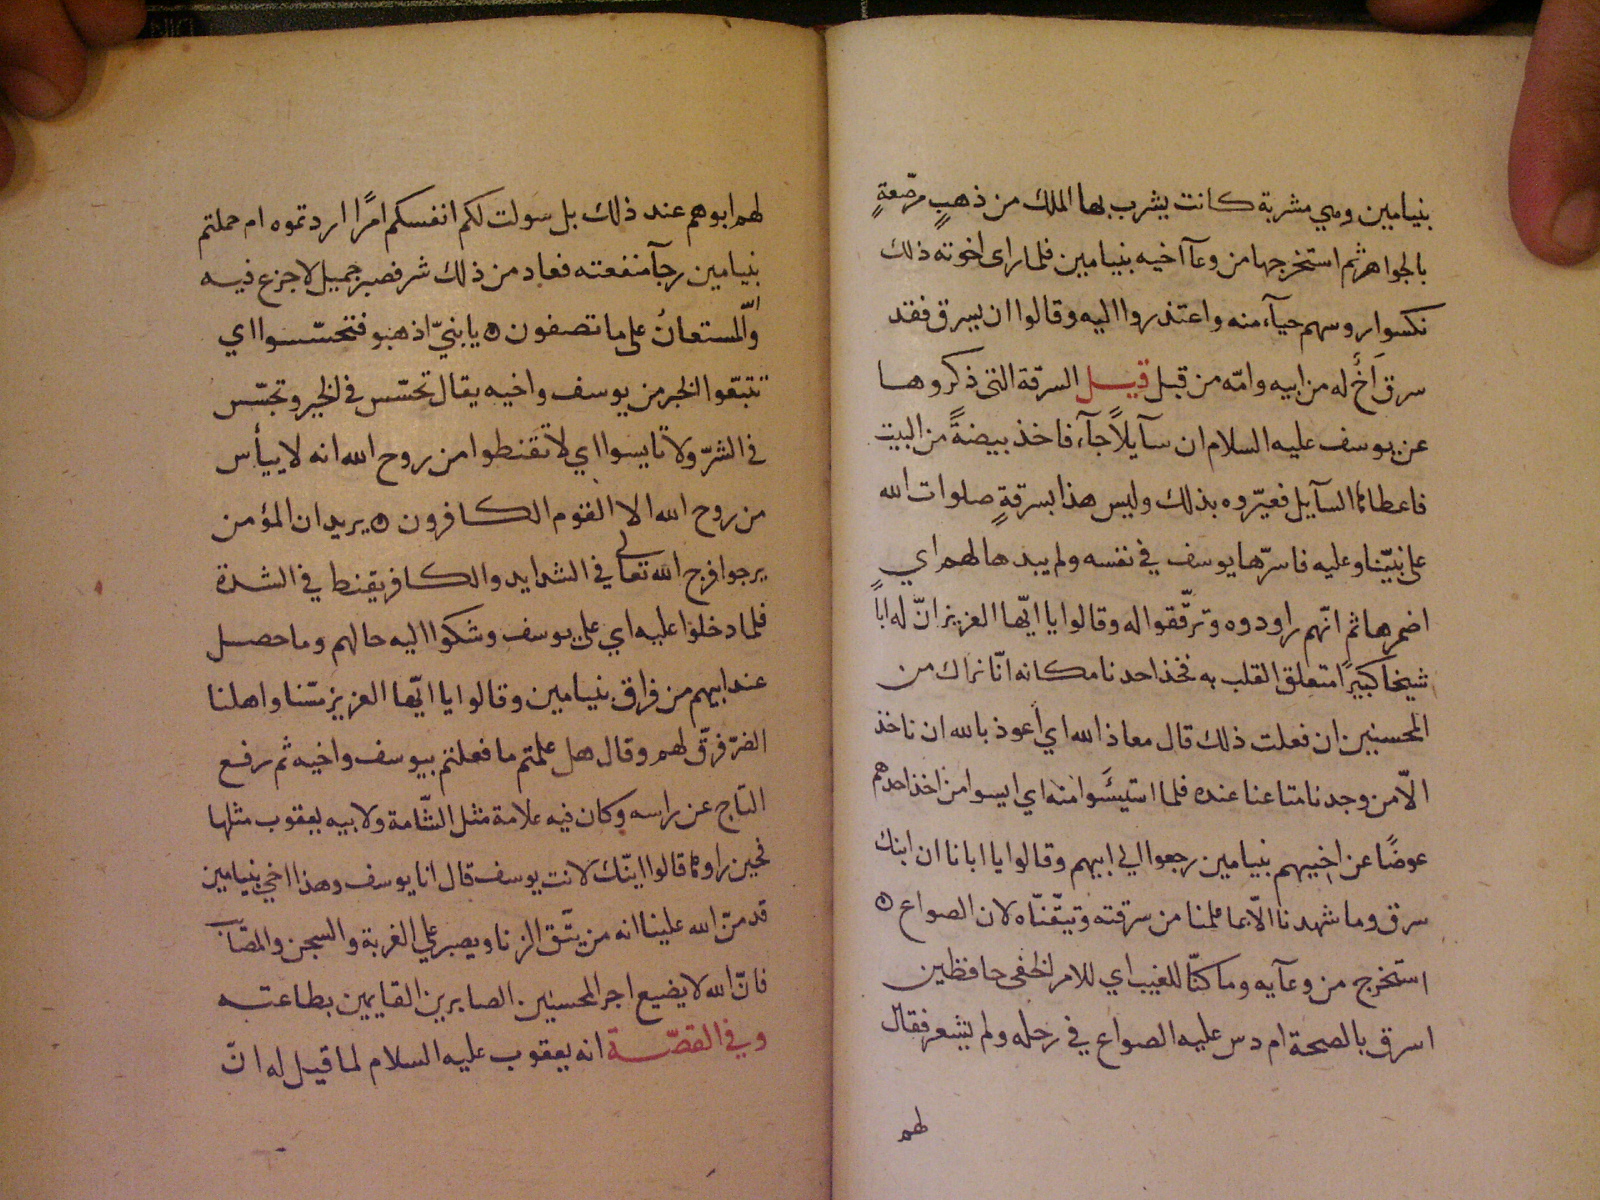 بنيامين وهي مشربة كانت يشرب بها الملك من ذهبٍ مرصّعةٍ
بالجواهر ثم استخرجها من وعآ اخيه بنيامين فلما راى اخوته ذلك
نكسوا روسهم حيآء منه واعتذروا اليه وقالوا ان يسرق فقد
سرق أخٌ له من ابيه وامّه من قبل قيل السرقة التى ذكروها
عن يوسف عليه السلام ان سآيلاً جآء فاخذ بيضةً من البيت
فاعطاها السآيل فعيّروه بذلك وليس هذا بسرقةٍ صلوات الله
على نبيّنا وعليه فاسرّها يوسف في نفسه ولم يبدها لهم اي
اضمرها ثم انّهم راودوه وترقّقوا له وقالوا يا ايّها العزيز انّ له اباً
شيخا كبيرًا متعلق القلب به فخذ احدنا مكانه انّا نراك من
المحسنين ان فعلت ذلك قال معاذ الله اي أعوذ بالله ان ناخذ
الّا من وجدنا متاعنا عنده فلما استيئسوا منه اي ايسوا من اخذ احدهم
عوضًا عن اخيهم بنيامين رجعوا الي ابيهم وقالوا يا ابانا ان ابنك
سرق وما شهدنا الّا بما علمنا من سرقته وتيقّنّاه لان الصواع ه
استخرج من وعآيه وما كنّا للغيب اي للامر الخفى حافظين
اسرق بالصحة ام دس عليه الصواع في رحله ولم يشعر فقال
لهم
لهم ابوهم عند ذلك بل سولت لكم انفسكم امرًا اردتموه ام حملتم
بنيامين رجآ منفعته فعاد من ذلك شر فصبر جميل لا جزع فيه
والله المستعانُ على ما تصفون ه يا بنيّ اذهبو فتحسّسوا اي
تتبّعوا الخبر من يوسف واخيه يقال تحسّس في الخير وتجسّس
في الشرّ ولا تايسوا اي لا تقنطوا من روح الله انه لا ييأس
من روح الله الا القوم الكافرون ه يريد ان المؤمن
يرجوا فرج الله تعالى في الشدايد والكافر يقنط في الشدة
فلما دخلوا عليه اي على يوسف وشكوا اليه حالهم وما حصل
عند ابيهم من فراق بنيامين وقالوا يا ايّها العزيز مسّنا واهلنا
الضرّ فرقّ لهم وقال هل علمتم ما فعلتم بيوسف واخيه ثم رفع
التاج عن راسه وكان فيه علامة مثل الشّامة ولابيه يعقوب مثلها
فحين راوها قالوا اينّك لانت يوسف قال انا يوسف وهذا اخي بنيامين
قد منّ الله علينا انه من يتّق الزنا ويصبر على الغربة والسجن والمصآيب
فانّ الله لا يضيع اجر المحسنين الصابرين القايمين بطاعته
وفي القصّة انه يعقوب عليه السلام لما قيل له انّ